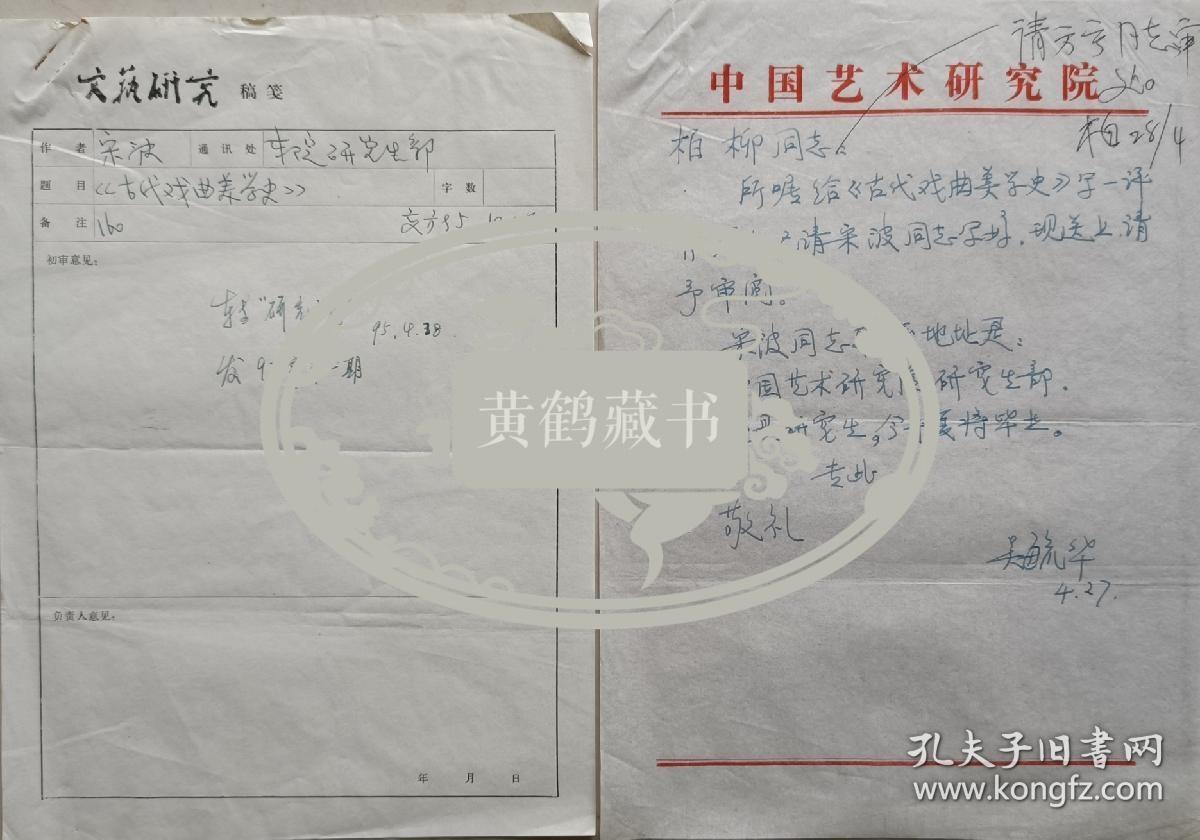 文艺研究 稿笺
作者 宋波 通讯处 本院研究生部
题目 《古代戏曲美学史》 字数
备注 160
初审意见：
转"研
95.4.28
发 期
负责人意见：
年 月 日
请方宁同志审
处。
柏 28/4
中国艺术研究院
柏柳同志：
所嘱给《古代戏曲美学史》写一评
请宋波同志写好，现送上请
予审阅。
宋波同志 地址是：
国艺术研究 研究生部.
研究生，今 夏将毕业。
专此
敬礼
吴毓华
4.27.
黄鹤藏书
孔夫子旧书网
www.kongfz.com